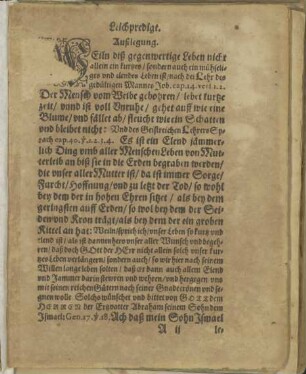 Leichpredigt.
Außlegung.
Weiln diß gegenwertige Leben nicht
allein ein kurtzes / sondern auch ein mühseliges
und elendes Leben ist / nach der Lehr des
gedültigen Mannes Job. cap. 14. vers. 1. 2.
Der Mensch vom Weibe gebohren / lebet kurtze
zeit / vnnd ist voll Vnruhe / gehet auff wie eine
Blume / vnd fället ab / fleucht wie ein Schatten
vnd bleibet nicht: Vnd des Geistreichen Lehrers Sy-
rach cap. 40. 1. 2. 3. 4. Es ist ein Elend jämmer-
lich Ding vmb aller Menschen Leben von Mut-
terleib an biß sie in die Erden begraben werden /
die vnser aller Mutter ist / da ist immer Sorge /
Furcht / Hoffnung / vnd zu letzt der Tod / so wohl
bey dem der in hohen Ehren sitzet / als bey dem
geringsten auff Erden / so wol bey dem der Sei-
den vnd Kron trägt / als bey dem der ein groben
Kittel an hat: Weiln / sprich ich / vnser Leben so kurtz vnd
elend ist / als ist dannenhero vnser aller Wunsch vnd begeh-
ren / daß doch Gott der HErr nicht allein solch vnser kur-
tzes Leben verlängern / sondern auch / so wir hier nach seinem
Willen lange leben solten / daß er dann auch allem Elend
vnd Jammer darin stewren vnd wehren / vnd hergegen vns
mit seinen reichen Gütern nach seiner Gnade krönen vnd se-
gnen wolle. Solchs wünschet vnd bittet von GOTT dem
HERREN der Ertzvatter Abraham seinem Sohn dem
Ismael: Gen. 17. v. 18. Ach daß mein Sohn Ismael
A ij le-